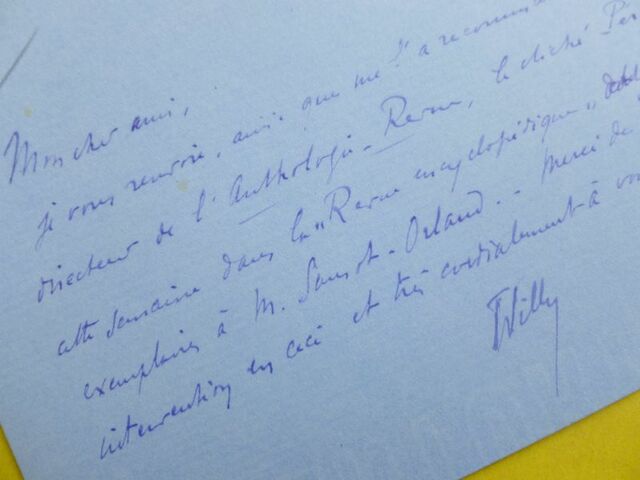 Mon cher ami,
je vous renvoie, ainsi que me l'a recommandé
directeur de l'Anthologie-Revue, le cliché
cette semaine dans la "Revue encyclopédique"
exemplaires à M. Sansot-Orland. - Merci de
intervention en ceci et très cordialement à vous
Willy